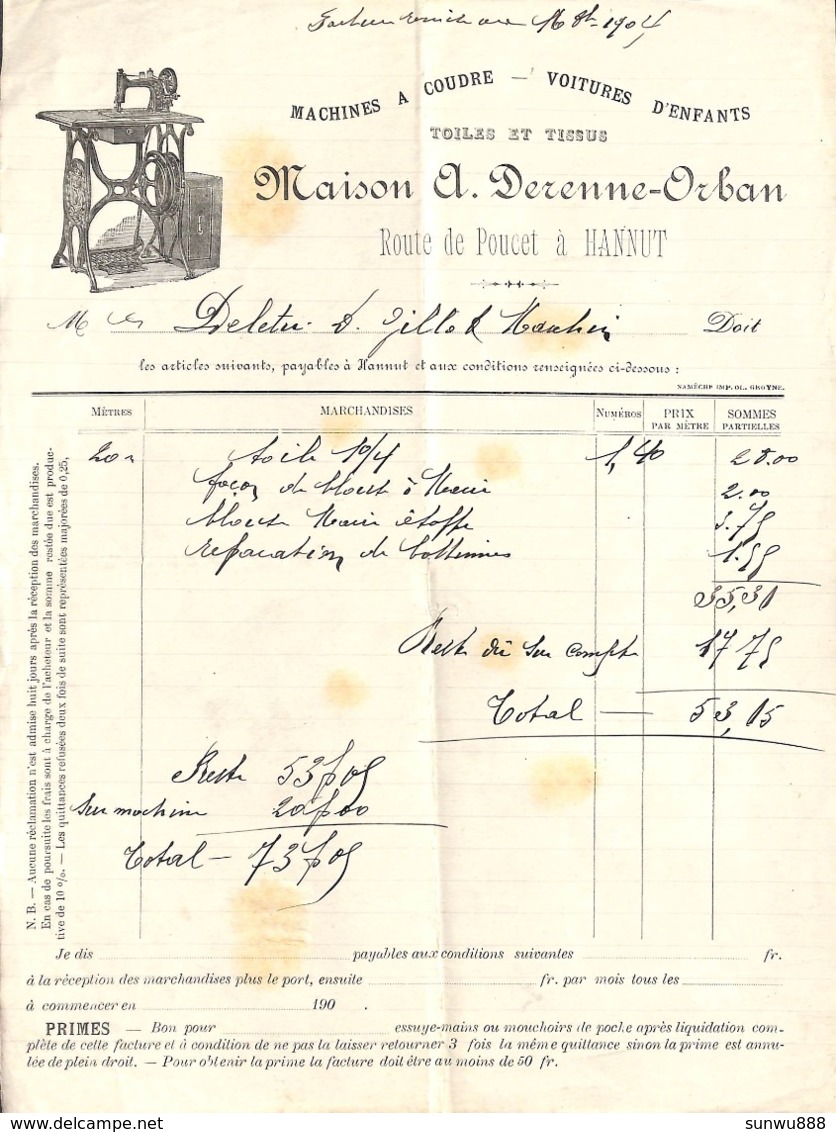 8bre 1904
MACHINES A COUDRE — VOITURES D'ENFANTS
TOILES ET TISSUS
Maison A. Derenne-Orban
Route de Poucet à HANNUT
M Doit
les articles suivants, payables à Hannut et aux conditions renseignées ci-dessous :
NAMÈCHE IMP. OL. GROYNE.
MÈTRES MARCHANDISES NUMÉROS PRIX PAR MÈTRE SOMMES PARTIELLES
20 m toile 10/4 1,40 28.00
façon de blouse à 2.00
blouse étoffe 3.75
réparation de bottinnes 1.55
35,30
Reste dû sur compte 17 75
Total — 53,05
Reste 53f05
sur machine 20f00
Total — 73f05
N. B. — Aucune réclamation n'est admise huit jours après la réception des marchandises.
En cas de poursuite les frais sont à charge de l'acheteur et la somme restée due est produc-
tive de 10 %. — Les quittances refusées deux fois de suite sont représentées majorées de 0,25,
Je dis payables aux conditions suivantes fr.
à la réception des marchandises plus le port, ensuite fr. par mois tous les
à commencer en 190 .
PRIMES — Bon pour essuye-mains ou mouchoirs de poche après liquidation com-
plète de cette facture et à condition de ne pas la laisser retourner 3 fois la même quittance sinon la prime est annu-
lée de plein droit. — Pour obtenir la prime la facture doit être au moins de 50 fr.
Source: www.delcampe.net | sunwu888